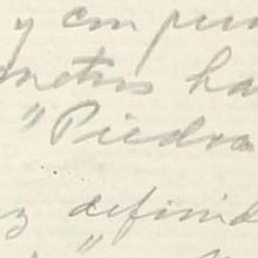 y con
metros ha
"Piedra
definid
"